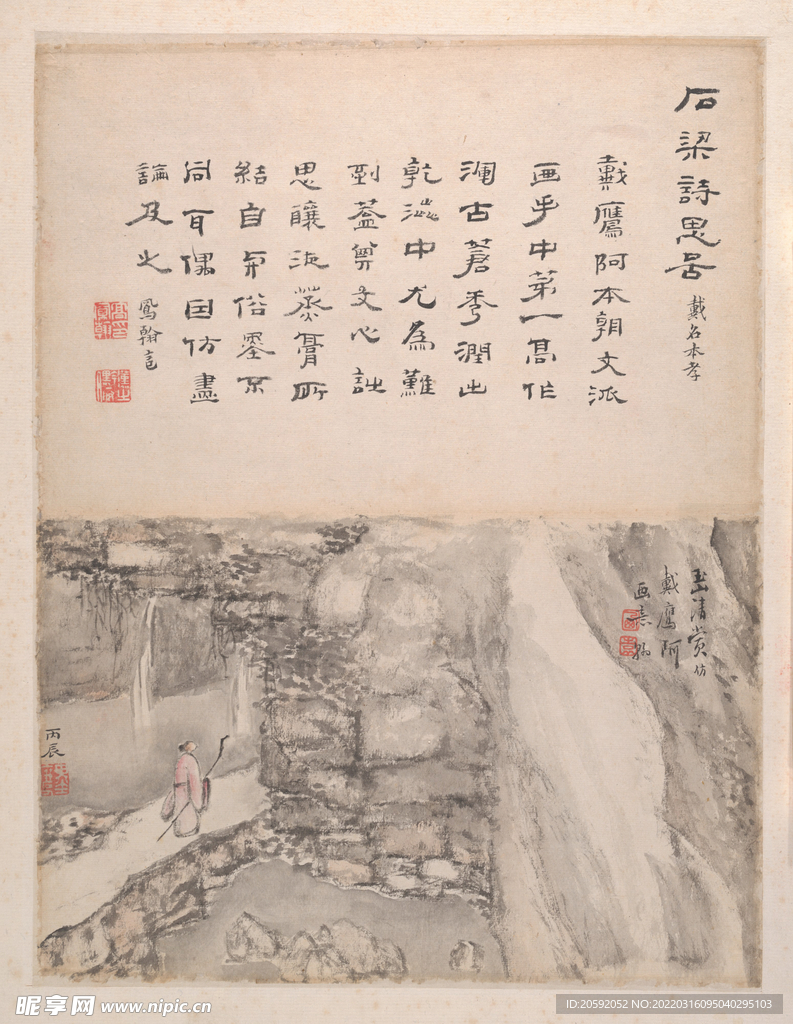 石梁詩思啚
戴名本孝
戴鷹阿本朝文派
画手中第一髙作
渾古蒼秀潤出
乾澁中尤為難
到蓋文心
思釀蒸膏所
結自與俗墨不
同耳偶因仿畫
論及之
鳳翰言
清赏仿
戴鹰阿
画意
丙辰
昵享网 www.nipic.cn
ID:20592052 NO:20220316095040295103